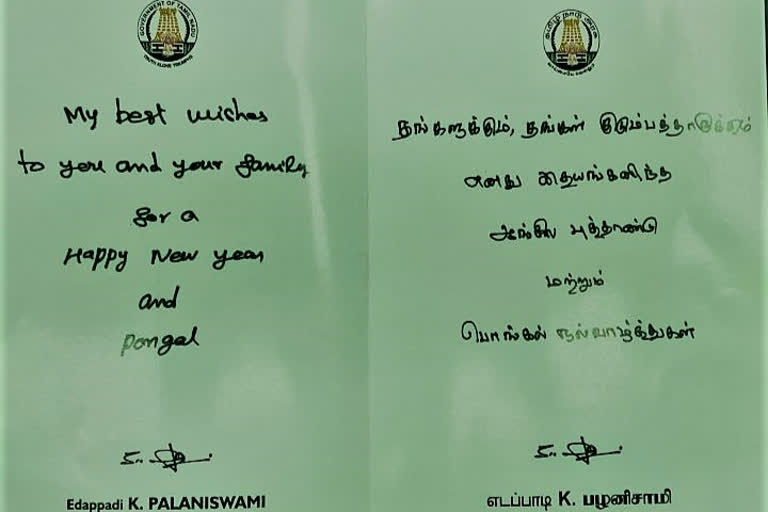 GOVERNMENT OF TAMIL NADU
TRUTH ALONE TRIUMPHS
My best wishes
to you and your family
for a
Happy New year
and
pongal
Edappadi K. PALANISWAMI
தமிழ்நாடு அரசு
வாய்மையே வெல்லும்
தங்களுக்கும், தங்கள் குடும்பத்தாருக்கும்
எனது இதயங்கனிந்த
ஆங்கில புத்தாண்டு
மற்றும்
பொங்கல் நல்வாழ்த்துகள்
எடப்பாடி K. பழனிசாமி